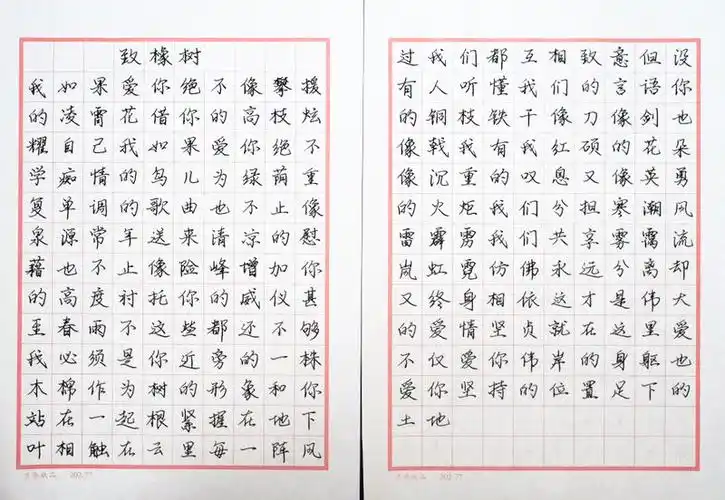 致橡树
我如果爱你绝不像攀援
的凌霄花借你的高枝炫
耀自己我如果爱你绝不
学痴情的鸟儿为绿荫重
复单调的歌曲也不止像
泉源常年送来清凉的慰
藉也不止像险峰增加你
的高度衬托你的威仪甚
至春雨不这些都还不够
我必须是你近旁的一株
木棉作为树的形象和你
站在一起根紧握在地下
叶相触在云里每一阵风
过我们都互相致意但没
有人听懂我们的言语你
的铜枝铁干像刀像剑也
像戟我有我红硕的花朵
像沉重的叹息又像英勇
的火炬我们分担寒潮风
雷霹雳我们共享雾霭流
岚虹霓仿佛永远分离却
又终身相依这才是伟大
的爱情坚贞就在这里爱
不仅爱你伟岸的身躯也
爱你坚持的位置足下的
土地